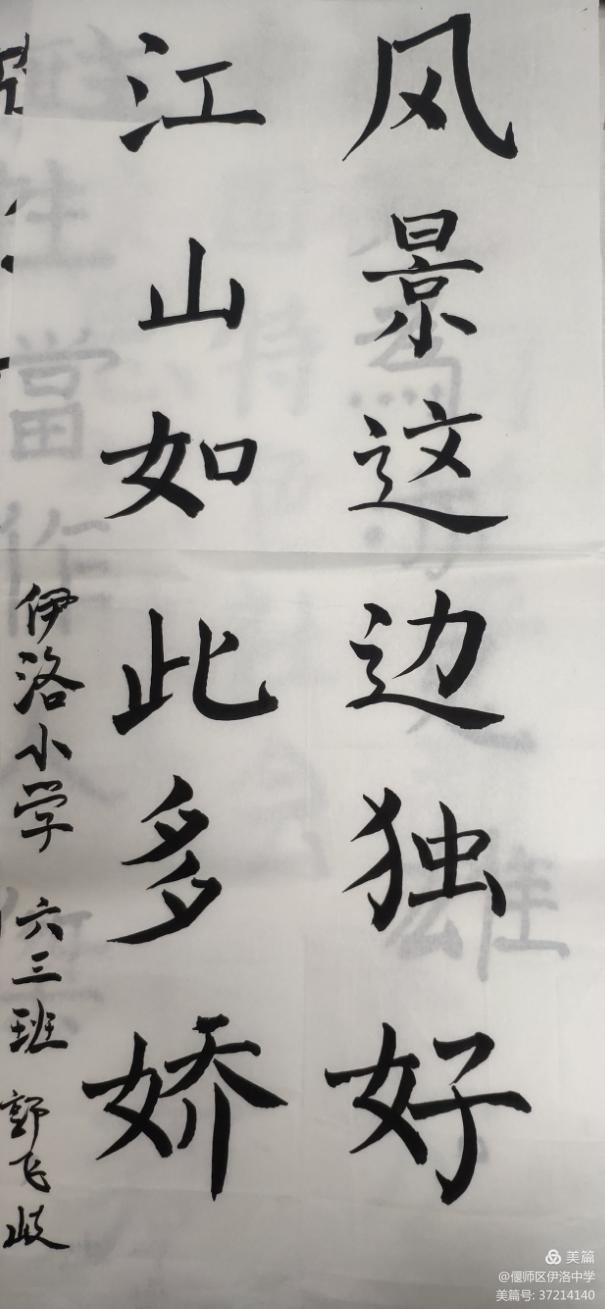 风景这边独好
江山如此多娇
伊洛小学 六三班 郭飞岐
美篇
@偃师区伊洛中学
美篇号: 37214140